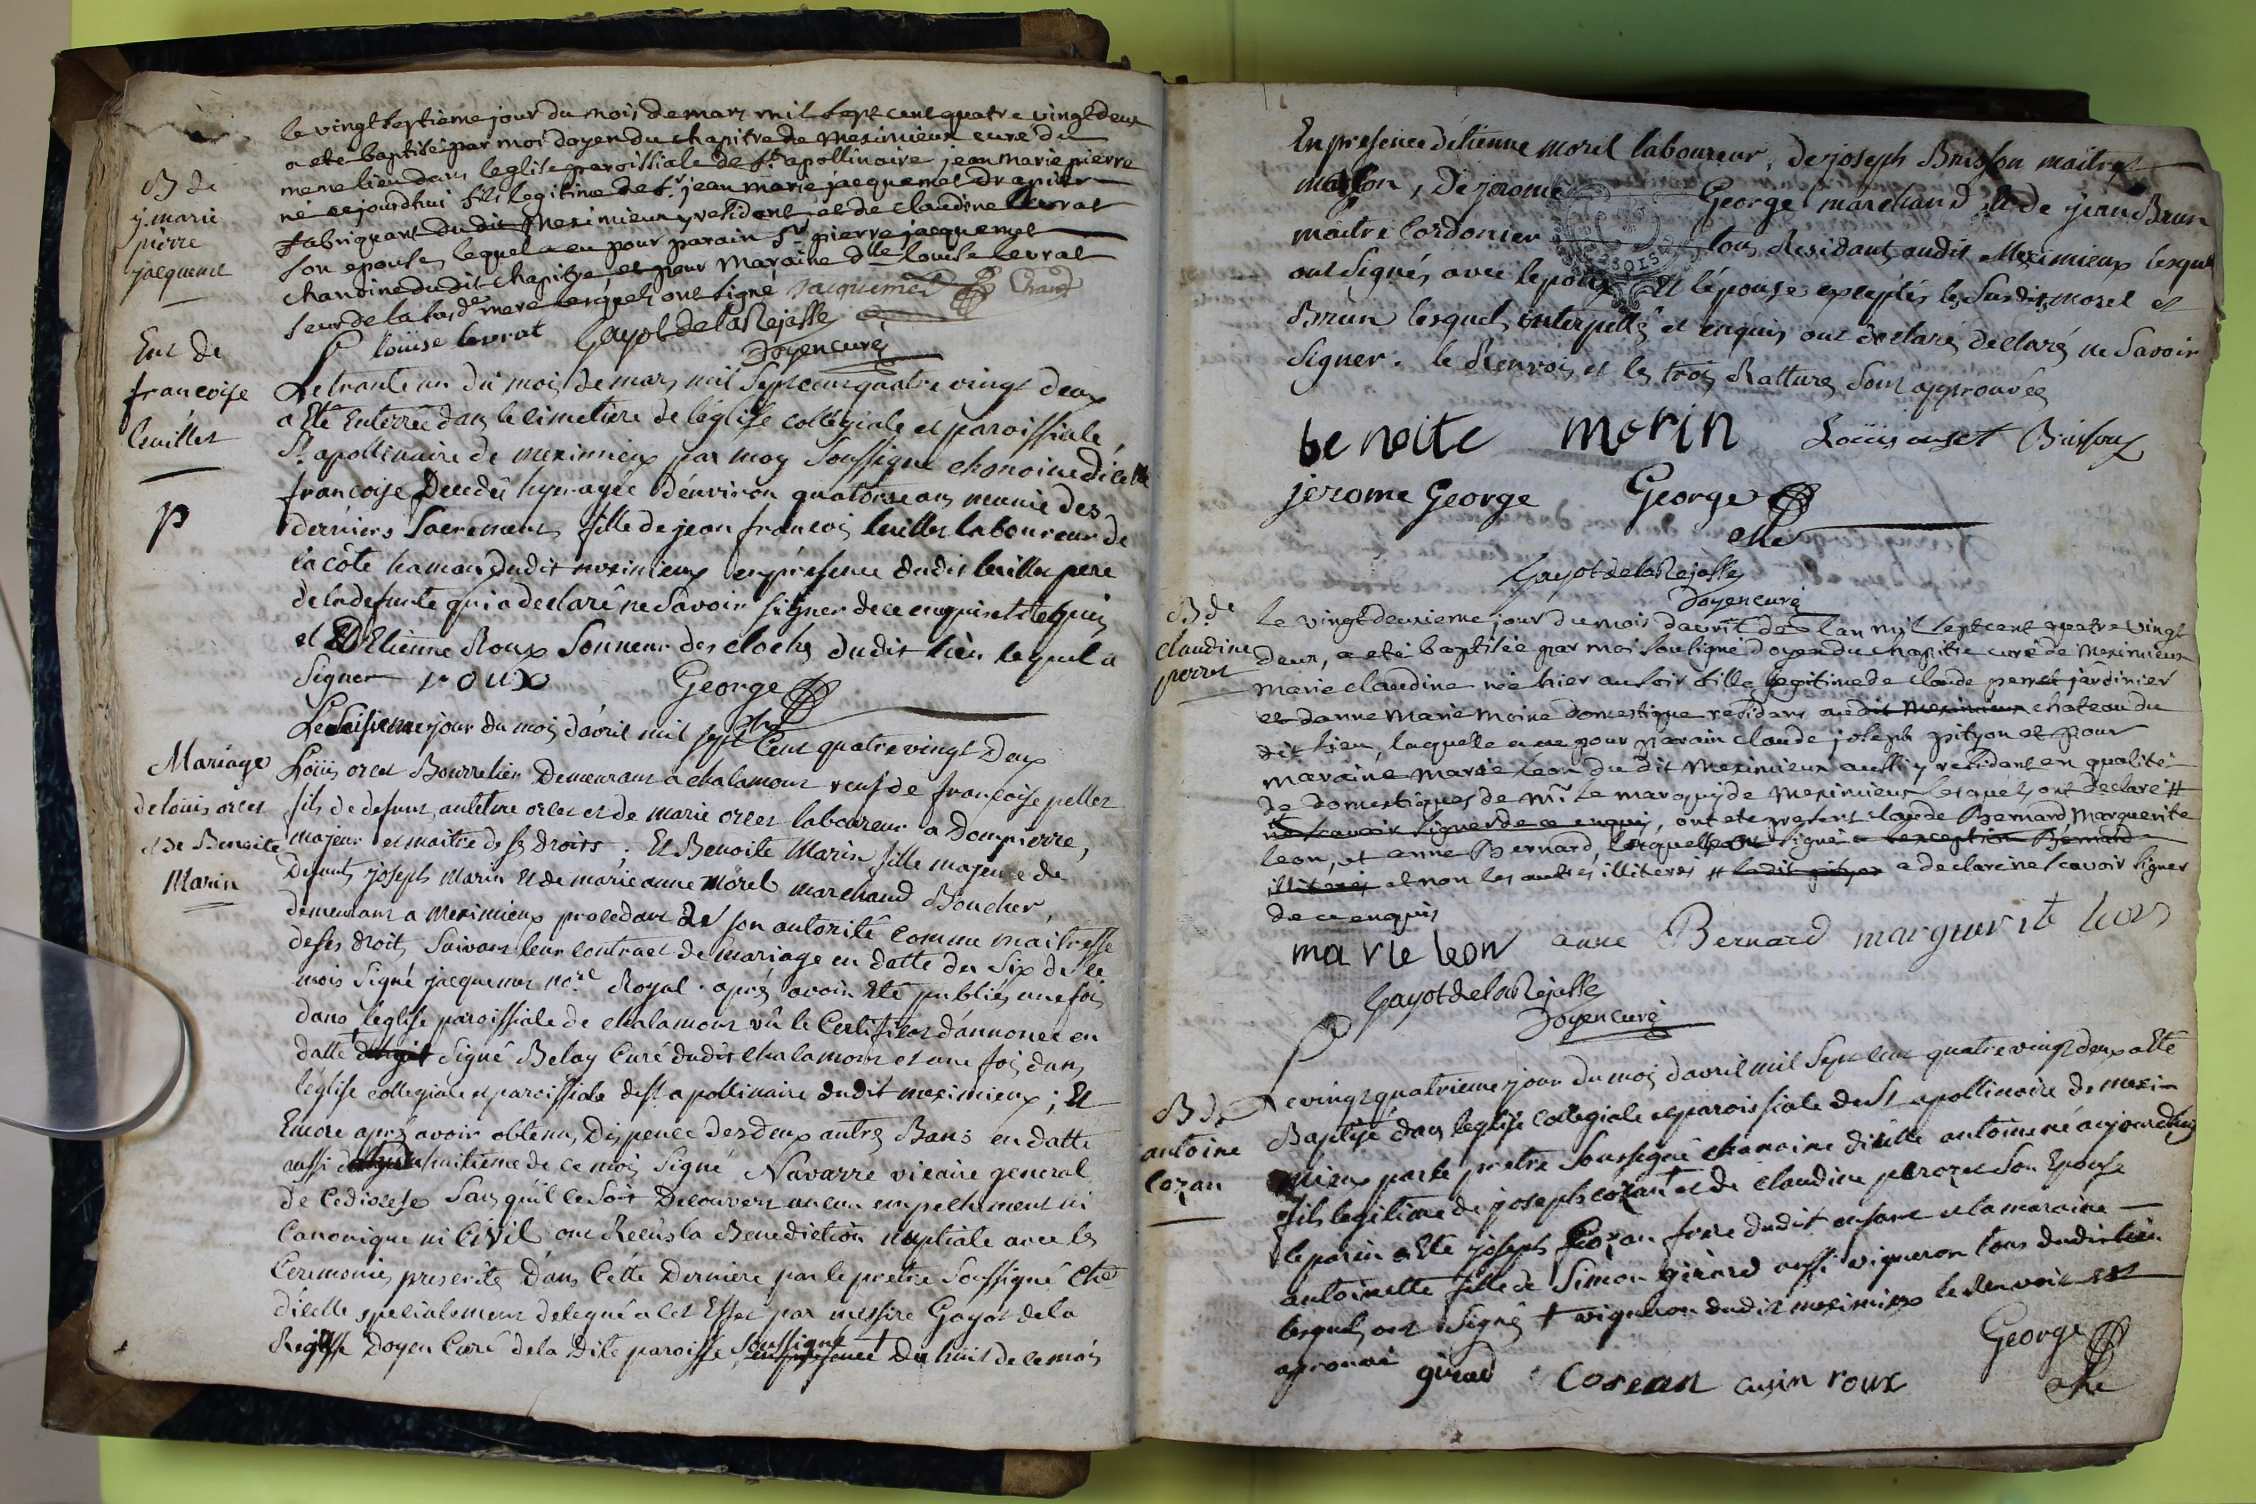 le vingt septieme jour du mois de mars mil sept cent quatre vingt deux
a eté baptisé par moi doyen du chapitre de Meximieux curé du
meme lieu dans leglise paroissiale de St apollinaire jean marie pierre
né cejourdhui fils legitime de Sr jean marie jacquemet drapier
fabriquant du dit Meximieux y residant et de claudine levrat
son epouse, lequel a eu pour parain Sr pierre jacquemet
chanoine dudit chapitre et pour Maraine dlle louise levrat
seur de la susde mere lesquels ont signé jacquemet Chane
B de
j. marie
pierre
jacquemet
louise levrat Gayot de la Rejasse
Doyen curé
Ent de
francoise
Cuillet
Le trante un du mois de mars mil sept cent quatre vingt deux
a Eté Enterrée dans le cimetiere de léglise collégiale et paroissiale
St apollinaire de meximieux par moy soussigné chanoine dicelle
francoise Decedée hyer agée d'environ quatorse ans munie des
derniers Sacremens, fille de jean francois laboureur de
la côte hamau dudit meximieux en présence dudit pere
de la defunte qui a declaré ne savoir signer de ce enquis et requis
et D'Etienne Roux Sonneur des cloches dudit lieu lequel a
Signer roux George
P
che
Le Seisieme jour du mois d'avril mil sept Cent quatre vingt Deux
Mariage
de loüis orcet
et de Benoite
Marin
Loüis orcet Bourrelier Demeurant a chalamont veuf de francoise pellet
fils de defunt antoine orcet et de marie orcet laboureur a Dompierre,
majeur et maitre de ses droits. Et Benoite Marin fille majeure de
Defunt joseph Marin et de marie anne Morel marchand Boucher,
demeurant a Meximieux procedant de son autorité comme maitresse
de ses droits, suivant leur contract de mariage en datte du Six de ce
mois Signé jacquemet nore Royal. après avoir Eté publiés une fois
dans l'eglise paroissiale de chalamont vû le Certificat d'annonce en
datte Signé Belay Curé dudit chalamont et une fois dans
l'église collegiale et paroissiale de St apollinaire dudit meximieux ; Et
Encore après avoir obtenu Dispence des deux autres Bans en datte
aussi huitieme de ce mois Signé Navarre vicaire general
de ce diocese Sans qu'il ce soit Decouvert aucun empechement ni
Canonique ni Civil ont Reçus la Benediction nuptiale avec les
Ceremonies prescrites Dans Cétte Derniere par le pretre Soussigné che
dicelle specialement delegué a cet Effet par messire Gayot de la
Rejasse Doyen Curé de la Dite paroisse soussigné en presence + Du huit de ce mois
En presence détienne morel laboureur, de joseph Brisson maitre
masson, De jerome George marchand et de jean Brun
maitre Cordonier tous Residants audit Meximieux lesquels
ont signés avec lepoux Et lépouse exceptés les susdits morel et
Brun lesquels interpellé et enquis ont declaré declaré ne Savoir
signer. le Renvois et les trois Ratture sont approuvées
benoite morin Loüis orset Brisson
jerome George George
che
Gayot de la Rejasse
Doyen curé
B de
claudine
perret
le vingt deuxieme jour du mois d'avril de lan mil sept cent quatre vingt
deux, a eté baptisée par moi soussigné doyen du chapitre curé de Meximieux
marie claudine née hier au soir fille legitime de claude perret jardinier
et danne Marie Moine domestique residans audit Meximieux chateau du
dit lieu, laquelle a eu pour parain claude joseph pityon et pour
maraine marie léon du dit Meximieux aussi y residant en qualité
de domestiques de Mr le marquis de Meximieux lesquels ont declaré #
ne scavoir signer de ce enquis, ont eté presens claude Bernard Marguerite
leon, et anne Bernard, lesquelles ont signé a lexception Bernard
illiterés et non les autres illiterés # ledit pityon a declaré ne scavoir signer
de ce enquis
marie leon anne Bernard marguerite leon
Gayot de la Rejasse
Doyen curé
B de
antoine
Cozan
Le vingt quatrieme jour du mois d'avril mil Sept Cent quatre vingt deux a Eté
Baptisé dans leglise collegiale et paroissiale de St apollinaire de mexi-
mieux par le pretre soussigné chanoine dicelle antoine né aujourdhuy
fils legitime de joseph cozan+ et de claudine perozet son Epouse
le parin a Eté joseph Cozan frere dudit enfant et la maraine
antoinette fille de Simon girard aussi vigneron tous dudit lieu
lesquels ont signé + vigneron dudit meximieux le Renvois est
aprouvé girard Cosean cusin roux George
che